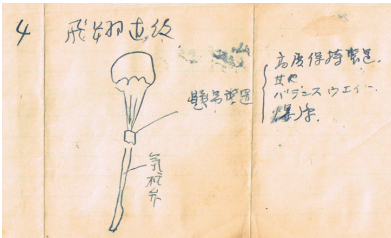 4 飛翔直後
懸吊装置
高度保持装置.
其他
バランスウエイト